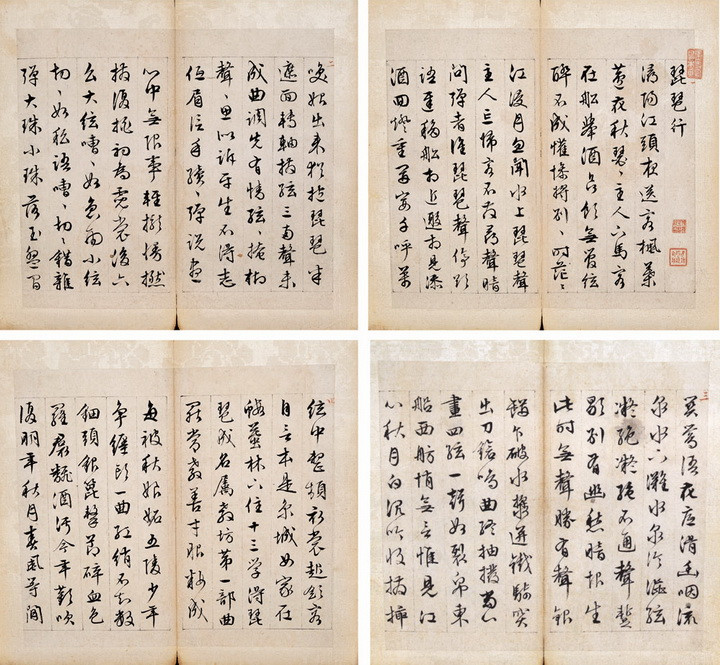 琵琶行
潯陽江頭夜送客楓葉
荻花秋瑟瑟主人下馬客
在船舉酒欲飲無管絃
醉不成懽慘將別別時茫茫
江浸月忽聞水上琵琶聲
主人忘歸客不發尋聲暗
問彈者誰琵琶聲停欲
語遲移船相近邀相見添
酒回燈重開宴千呼萬
喚始出來猶抱琵琶半
遮面轉軸撥絃三兩聲未
成曲調先有情絃絃掩抑
聲聲思似訴平生不得志
低眉信手續續彈說盡
心中無限事輕攏慢撚
撥復挑初為霓裳後六
么大絃嘈嘈如急雨小絃
切切如私語嘈嘈切切錯雜
彈大珠小珠落玉盤間
關鶯語花底滑幽咽流
泉水下灘水泉冷澀絃
凝絕凝絕不通聲暫
歇別有幽愁暗恨生
此時無聲勝有聲銀
瓶乍破水漿迸鐵騎突
出刀鎗鳴曲終抽撥當心
畫四絃一聲如裂帛東
船西舫悄無言惟見江
心秋月白沉吟收撥插
絃中整頓衣裳起斂容
自言本是京城女家在
蝦蟇陵下住十三學得琵
琶成名屬教坊第一部曲
罷常教善才服粧成
每被秋娘妬五陵少年
爭纏頭一曲紅綃不知數
鈿頭銀篦擊節碎血色
羅裙翻酒污今年歡笑
復明年秋月春風等閒